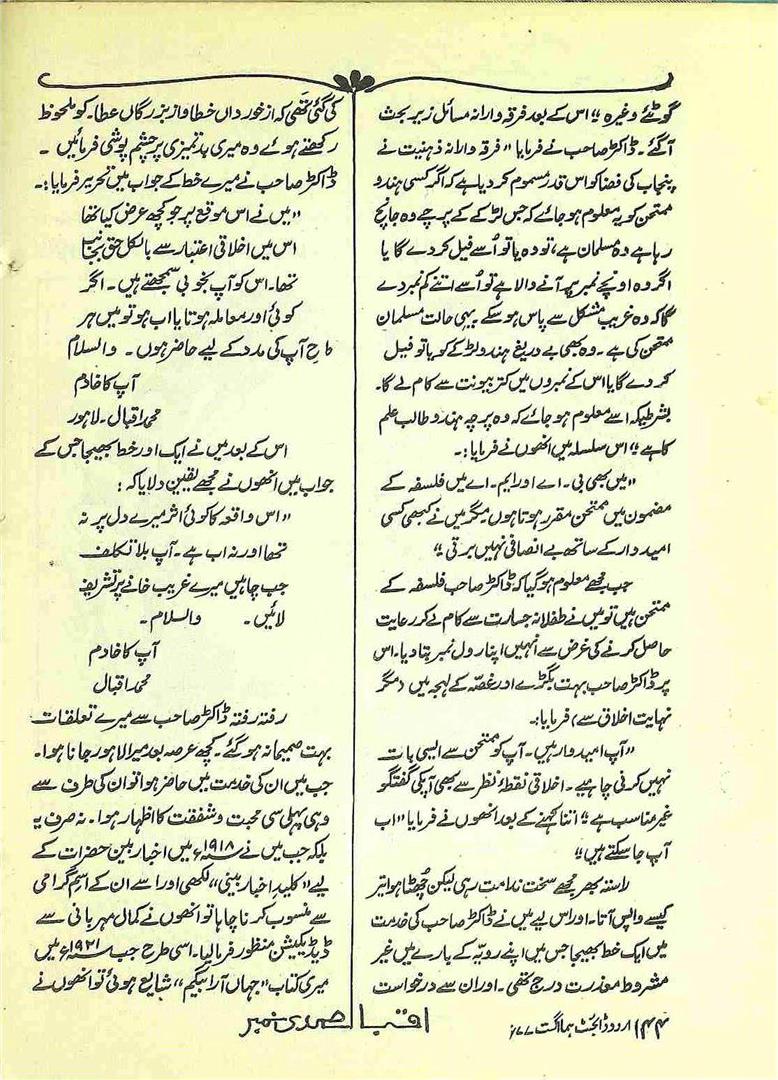 گوئٹے وغیرہ“ اس کے بعد فرقہ وارانہ مسائل زیر بحث
آ گئے۔ ڈاکٹر صاحب نے فرمایا ”فرقہ وارانہ ذہنیت نے
پنجاب کی فضا کو اس قدر مسموم کر دیا ہے کہ اگر کسی ہندو
ممتحن کو یہ معلوم ہو جائے کہ جس لڑکے کے پرچے وہ جانچ
رہا ہے وہ مسلمان ہے، تو وہ یا تو اُسے فیل کر دے گا یا
اگر وہ اونچے نمبر پر آنے والا ہے تو اُسے اتنے کم نمبر دے
گا کہ وہ غریب مشکل سے پاس ہو سکے یہی حالت مسلمان
ممتحن کی ہے۔ وہ بھی بے دریغ ہندو لڑکے کو یا تو فیل
کر دے گا یا اس کے نمبروں میں کتر بیونت سے کام لے گا۔
بشرطیکہ اسے معلوم ہو جائے کہ وہ پرچہ ہندو طالب علم
کا ہے“ اس سلسلہ میں انھوں نے فرمایا:۔
”میں بھی بی۔ اے اور ایم۔ اے میں فلسفہ کے
مضمون میں ممتحن مقرر ہوتا ہوں مگر میں نے کبھی کسی
امیدوار کے ساتھ بے انصافی نہیں برتی“
جب مجھے معلوم ہو گیا کہ ڈاکٹر صاحب فلسفہ کے
ممتحن ہیں تو میں نے طفلانہ جسارت سے کام لے کر رعایت
حاصل کرنے کی غرض سے انہیں اپنا رول نمبر بتا دیا۔ اس
پر ڈاکٹر صاحب بہت بگڑے اور غصّہ کے لہجہ میں (مگر
نہایت اخلاق سے) فرمایا:۔
”آپ امیدوار ہیں۔ آپ کو ممتحن سے ایسی بات
نہیں کرنی چاہیے۔ اخلاقی نقطۂ نظر سے بھی آپکی گفتگو
غیر مناسب ہے“ اتنا کہنے کے بعد انھوں نے فرمایا ”اب
آپ جا سکتے ہیں“
راستہ بھر مجھے سخت ندامت رہی لیکن چُھٹا ہوا تیر
کیسے واپس آتا۔ اور اس لیے میں نے ڈاکٹر صاحب کی خدمت
میں ایک خط بھیجا جس میں اپنے رویّہ کے بارے میں غیر
مشروط معذرت درج تھی۔ اور ان سے درخواست
کی گئی تھی کہ از خورداں خطا و از بزرگاں عطا۔ کو ملحوظ
رکھتے ہوئے وہ میری بدتمیزی پر چشم پوشی فرمائیں۔
ڈاکٹر صاحب نے میرے خط کے جواب میں تحریر فرمایا:۔
”میں نے اس موقع پر جو کچھ عرض کیا تھا
اس میں اخلاقی اعتبار سے بالکل حق بجانب
تھا۔ اس کو آپ بخوبی سمجھتے ہیں۔ اگر
کوئی اور معاملہ ہوتا یا اب ہو تو میں ہر
طرح آپ کی مدد کے لیے حاضر ہوں۔ والسلام
آپ کا خادم
محمد اقبال۔ لاہور
اس کے بعد میں نے ایک اور خط بھیجا جس کے
جواب میں انھوں نے مجھے یقین دلایا کہ:
”اس واقعہ کا کوئی اثر میرے دل پر نہ
تھا اور نہ اب ہے۔ آپ بلا تکلف
جب چاہیں میرے غریب خانے پر تشریف
لائیں۔ والسلام۔
آپ کا خادم
محمد اقبال
رفتہ رفتہ ڈاکٹر صاحب سے میرے تعلقات
بہت صمیمانہ ہو گئے۔ کچھ عرصہ بعد میرا لاہور جانا ہوا۔
جب میں ان کی خدمت میں حاضر ہوا تو ان کی طرف سے
وہی پہلی سی محبت و شفقت کا اظہار ہوا۔ نہ صرف یہ
بلکہ جب میں نے ۱۹۱۸ء میں اخبار بین حضرات کے
لیے ”کلید اخبار بینی“ لکھی اور اسے ان کے اسم گرامی
سے منسوب کرنا چاہا تو انھوں نے کمال مہربانی سے
ڈیڈیکیشن منظور فرما لیا۔ اسی طرح جب ۱۹۲۱ء میں
میری کتاب ”جہاں آرا بیگم“ شایع ہوئی تو انھوں نے
اردو ڈائجسٹ ہما اگست ۷۷ء
اقبال صدی نمبر